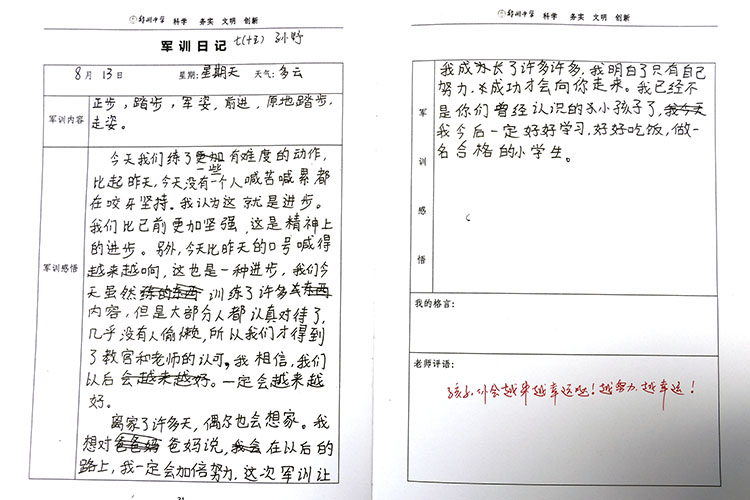 郑州中学 科学 务实 文明 创新
军训日记 七(十五)
8月13日 星期:星期天 天气:多云
军训内容
正步,踏步,军姿,前进,原地踏步,
走姿。
军训感悟
今天我们练了更加有难度的动作,
一些
比起昨天,今天没有一个人喊苦喊累都
在咬牙坚持。我认为这就是进步。
我们比已前更加坚强,这是精神上
的进步。另外,今天比昨天的口号喊得
越来越响,这也是一种进步,我们今
天虽然练的东西训练了许多东西
内容,但是大部分人都认真对待了,
几乎没有人偷懒,所以我们才得到
了教官和老师的认可。我相信,我们
以后会越来越好。一定会越来越
好。
离家了许多天,偶尔也会想家。我
想对爸爸妈爸妈说,我会在以后的
路上,我一定会加倍努力,这次军训让
31
郑州中学 科学 务实 文明 创新
军训感悟
我成长了许多许多,我明白了只有自己
努力,成功才会向你走来。我已经不
是你们曾经认识的小孩子了,我今天
我今后一定好好学习,好好吃饭,做一
名合格的小学生。
我的格言:
老师评语:
孩子,你会越来越幸运哒!越努力,越幸运!